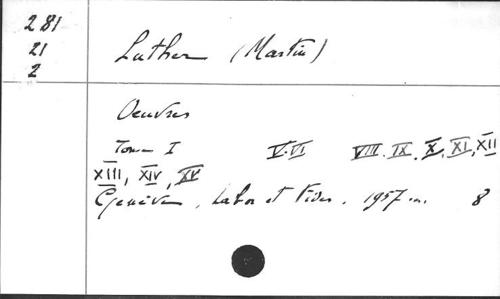 281
21
2
Luther (Martin)
Oeuvres
Tome I V.VI VIII. IX, X, XI, XII
XIII, XIV, XV
Genève, Labor et Fides. 1957 8